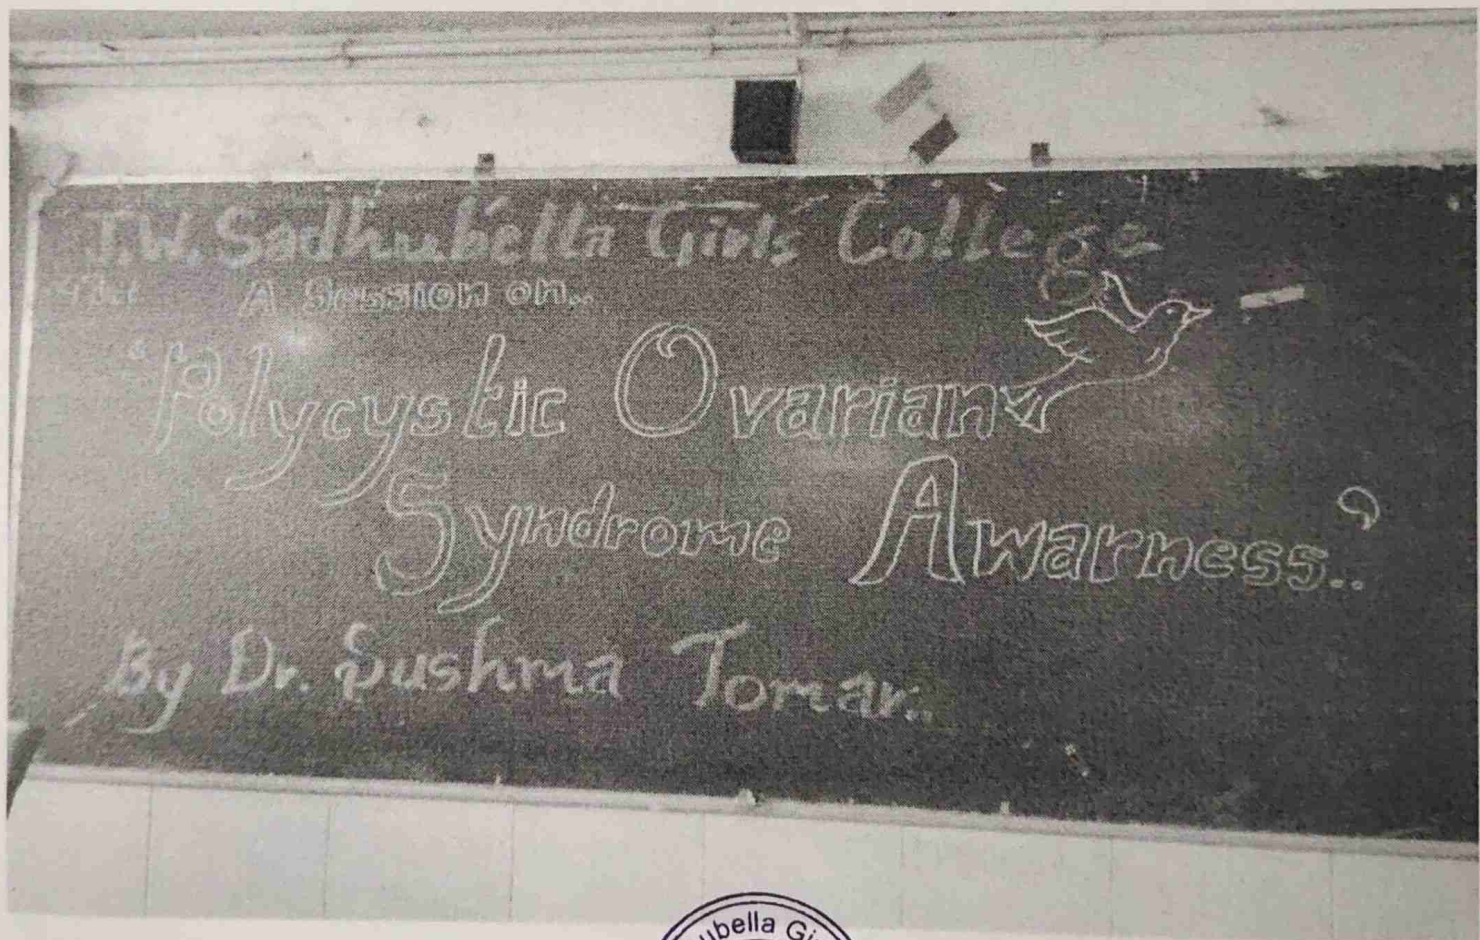 J.W. Sadhubella Girls' College
A Session on..
'Polycystic Ovarian
Syndrome Awarness..'
By Dr. Sushma Tomar..
ubella Gi